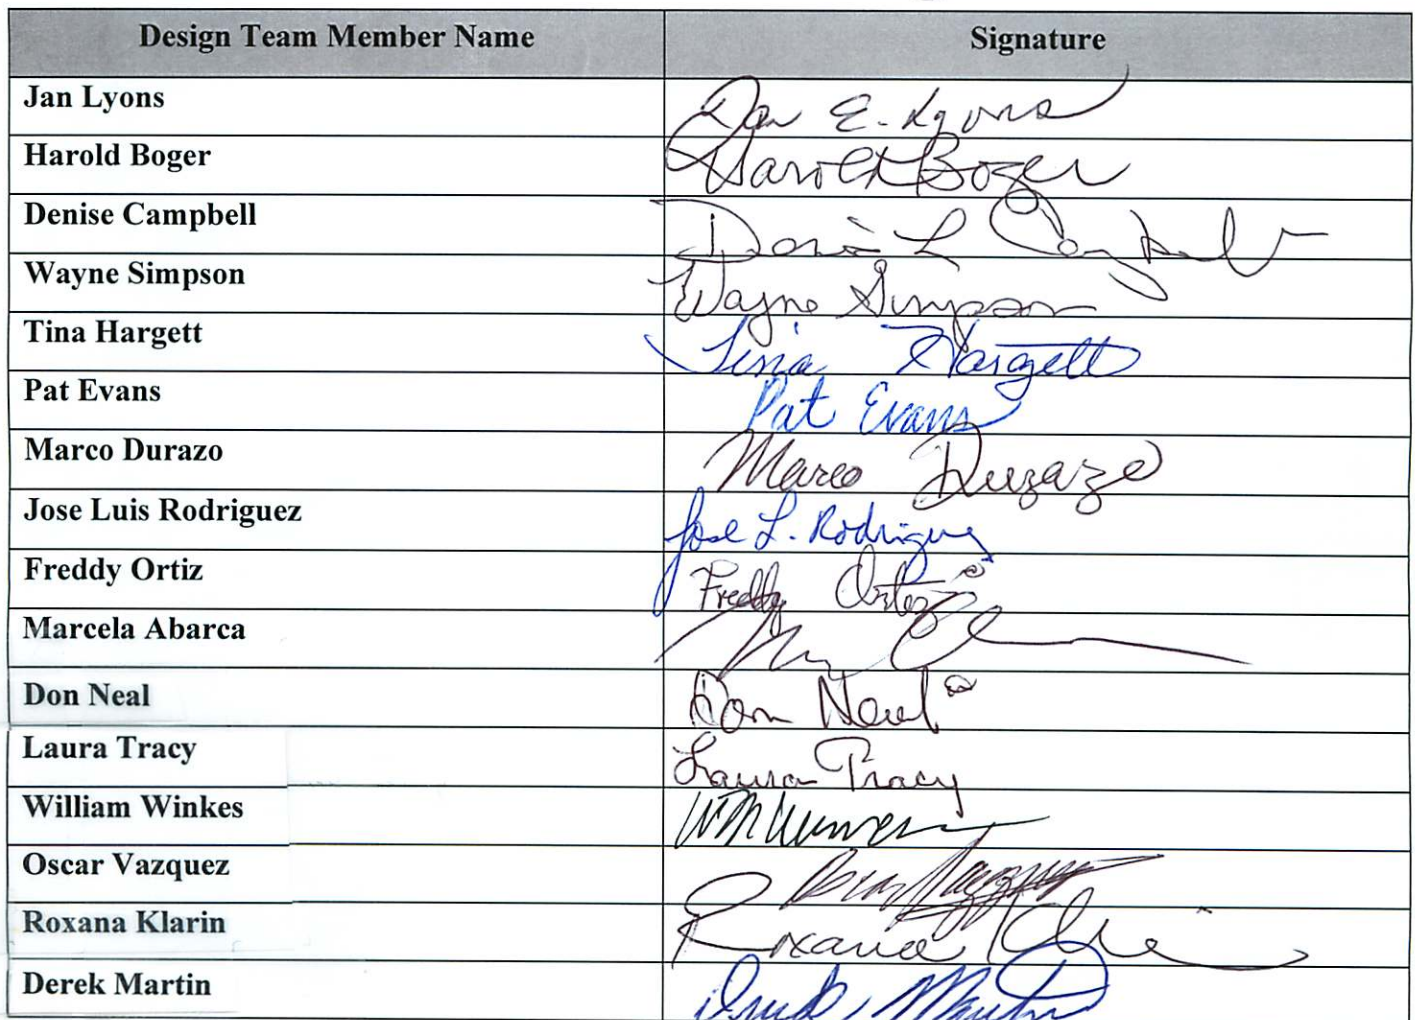 Design Team Member Name Signature
Jan Lyons Jan E. Lyons
Harold Boger Harold Boger
Denise Campbell Denise L Campbell
Wayne Simpson Wayne Simpson
Tina Hargett Tina Hargett
Pat Evans Pat Evans
Marco Durazo Marco Durazo
Jose Luis Rodriguez Jose L. Rodriguez
Freddy Ortiz Freddy Ortiz
Marcela Abarca
Don Neal Don Neal
Laura Tracy Laura Tracy
William Winkes
Oscar Vazquez Oscar Vazquez
Roxana Klarin Roxana
Derek Martin Derek Martin